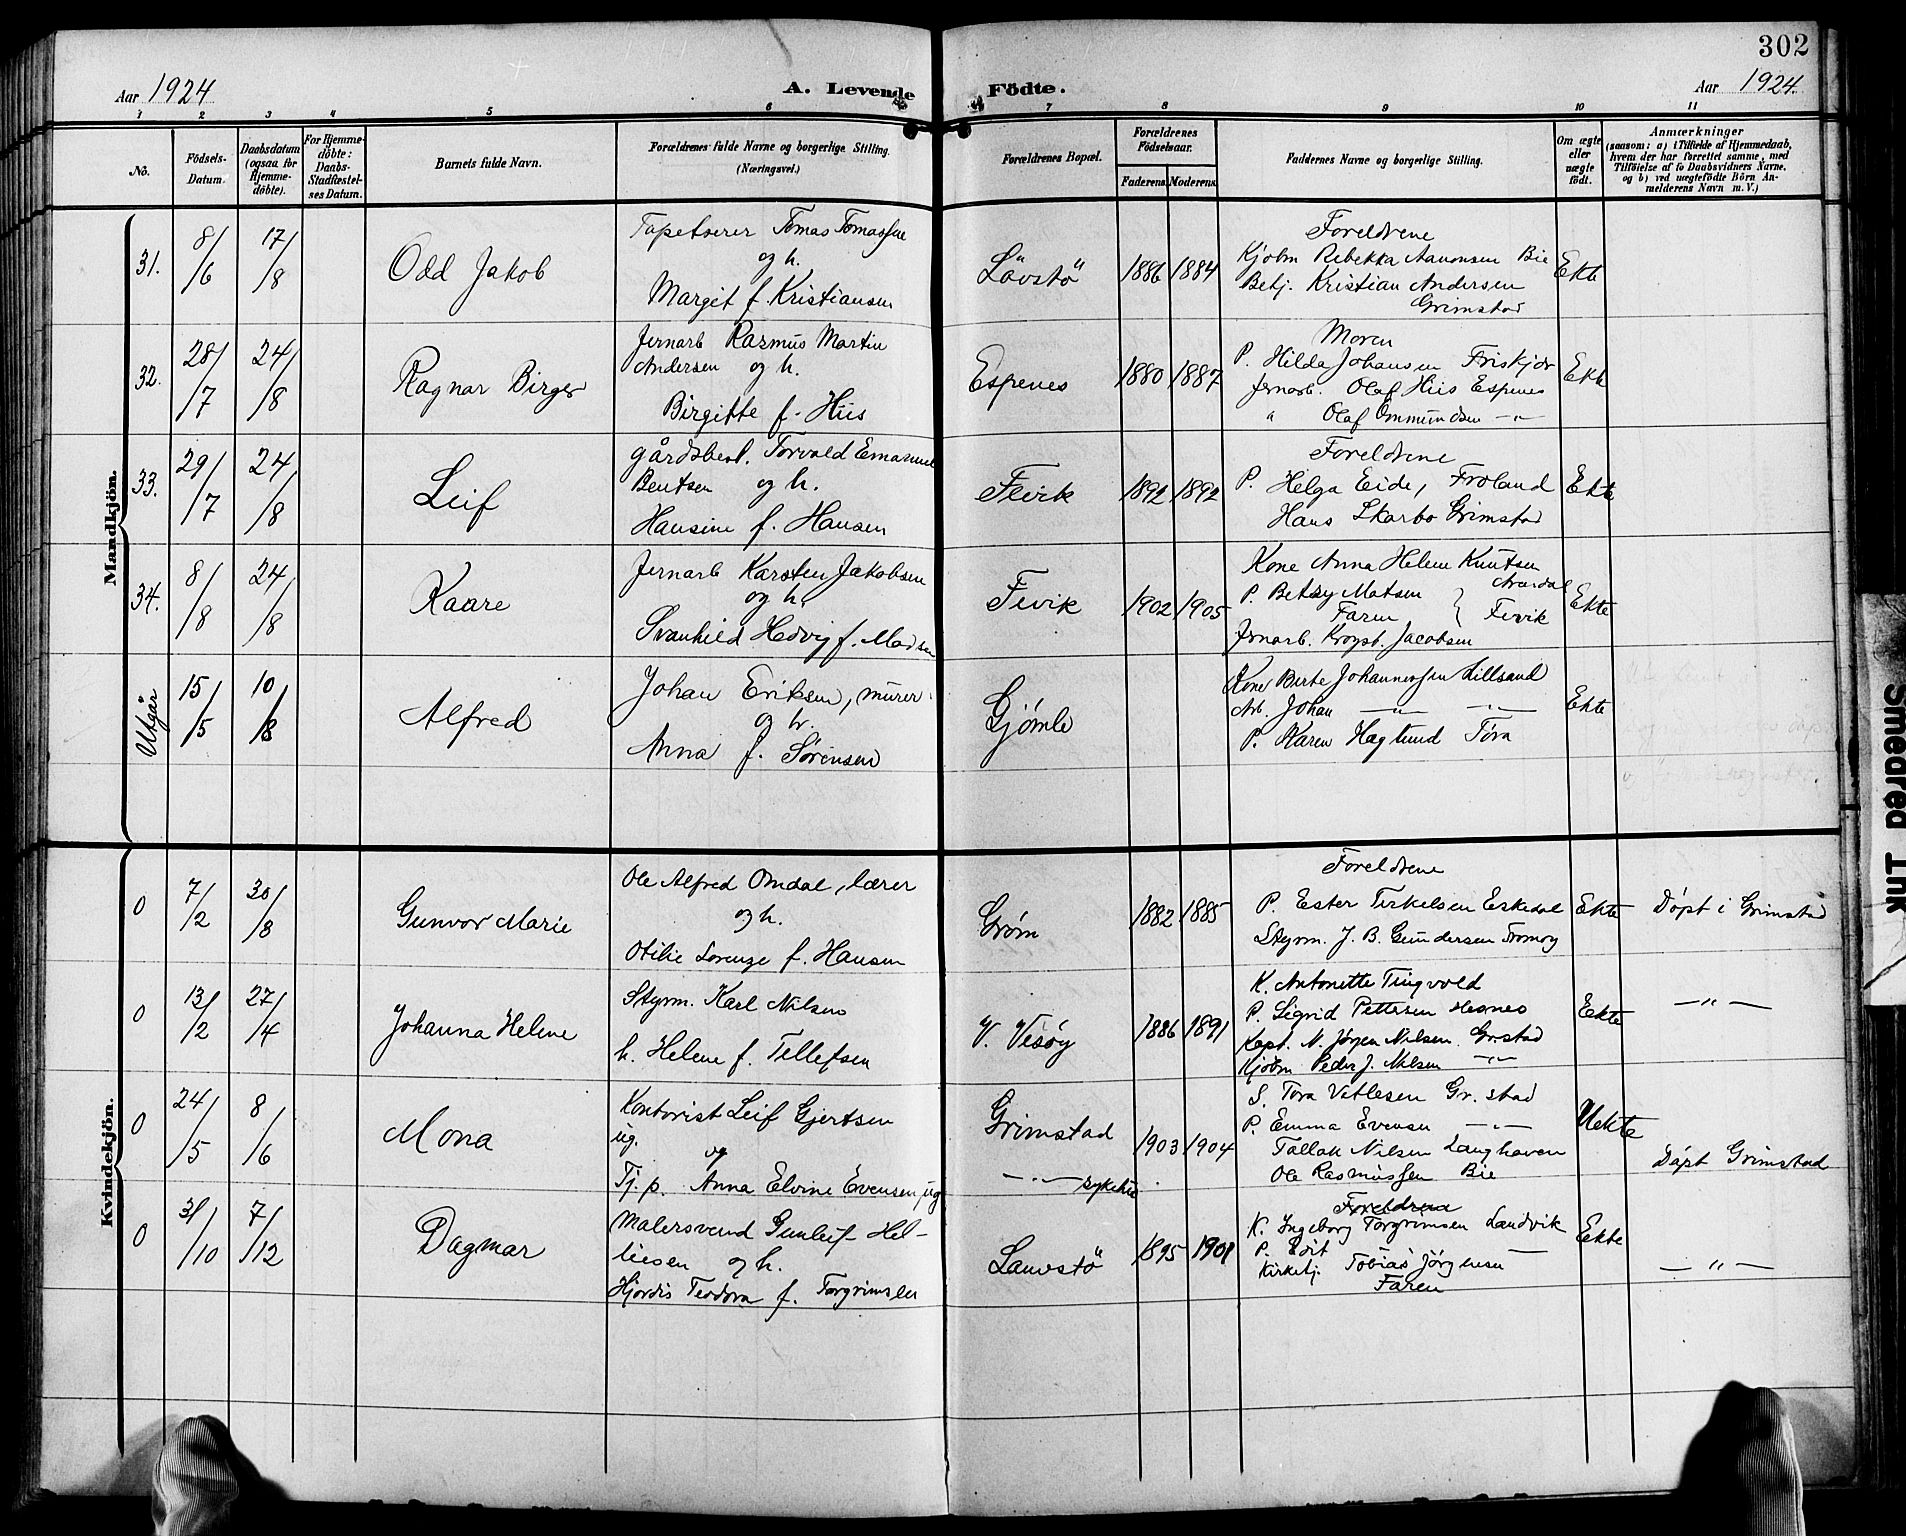 302
Aar 1924
A. Levende Födte.
Aar 1924.
1 2 3 4 5 6 7 8 9 10 11
No.
Födsels-
Datum.
Daabsdatum
(ogsaa for
Hjemme-
döbte).
For Hjemme-
döbte:
Daabs-
Stadfæstel-
ses Datum.
Barnets fulde Navn.
Forældrenes fulde Navne og borgerlige Stilling.
(Næringsvei.)
Forældrenes Bopæl.
Forældrenes
Födselsaar.
Faderens.
Moderens.
Faddernes Navne og borgerlige Stilling.
Om ægte
eller
uægte
födt.
Anmærkninger
(saasom: a) i Tilfælde af Hjemmedaab,
hvem der har forrettet samme, med
Tilföielse af to Daabsvidners Navne,
og b) ved uægtefödte Börn An-
melderens Navn m. V.)
Mandkjön.
31.
8/6
17/8
Odd Jakob
Tapetserer Tomas Tomassen
og h.
Margit f. Kristiansen
Lauvstö
1886 1884
Foreldrene
Kjøbm Rebekka Aanonsen Bie
Betj. Kristian Andersen
Grimstad
Ekte
32.
28/7
24/8
Ragnar Birger
Jernarb Rasmus Martin
Andersen og h.
Birgitte f. Hiis
Espenes
1880 1887
Moren
P. Hilda Johansen Friskjær
Jernarb. Olaf Hiis Espenes
" Olaf Ommundsen -"-
Ekte
33.
29/7
24/8
Leif
gårdsbest. Torvald Emanuel
Bentsen og h.
Hansine f. Hansen
Fevik
1892 1892
Foreldrene
P. Helga Eide, Froland
Hans Skarbo Grimstad
Ekte
34.
8/8
24/8
Kaare
Jernarb Karsten Jakobsen
og h.
Svanhild Hedvig f. Madsen
Fevik
1902 1905
Kone Anna Helene Knutsen
Arendal
P. Betsy Matsen
Faren } Fevik
Jrnarb. Krogst. Jacobsen
Ekte
Utgår
15/5
10/8
Alfred
Johan Eriksen, murer
og h.
Anna f. Sørensen
Gjømle
Kone Berte Johannessen Lillsand
Arb. Johan -"- -"-
P. Karen Haglund Töra
Ekte
Kvindekjön.
0
7/2
30/8
Gunvor Marie
Ole Alfred Omdal, lærer
og h.
Otilie Lorenze f. Hansen
Grøm
1882 1885
Foreldrene
P. Ester Terkelsen Eskedal
Styrm. J. B. Gundersen Tromøy
Ekte
Döpt i Grimstad
0
13/2
27/4
Johanna Helene
Styrm. Karl Nilsen
h. Helene f. Tellefsen
V. Vesöy
1886 1891
K. Antonette Tingvold
P. Sigrid Pettersen Hesnes
Kapt. N. Jørgen Nilsen Gr.stad
Kjöbm Peder J. Nilsen -"-
Ekte
-"-
0
24/5
8/6
Mona
Kontorist Leif Gjertsen
ug. og
Tj. p. Anna Elvine Evensen ug
Grimstad
-"- sykehus
1903 1904
S. Tora Vetlesen Gr. stad
P. Emma Evensen -"-
Tallak Nilsen Langhaven
Ole Rasmussen Bie
Uekte
Döpt Grimstad
0
31/10
7/12
Dagmar
Malersvend Gunleif Hel-
liesen og h.
Hjordis Teodora f. Torgrimsen
Lauvstö
1895 1901
Foreldrene
K. Ingeborg Torgrimsen Landvik
P. Edit —
Kirketj. Tobias Jörgensen
Faren
Ekte
-"-
Smeared Ink